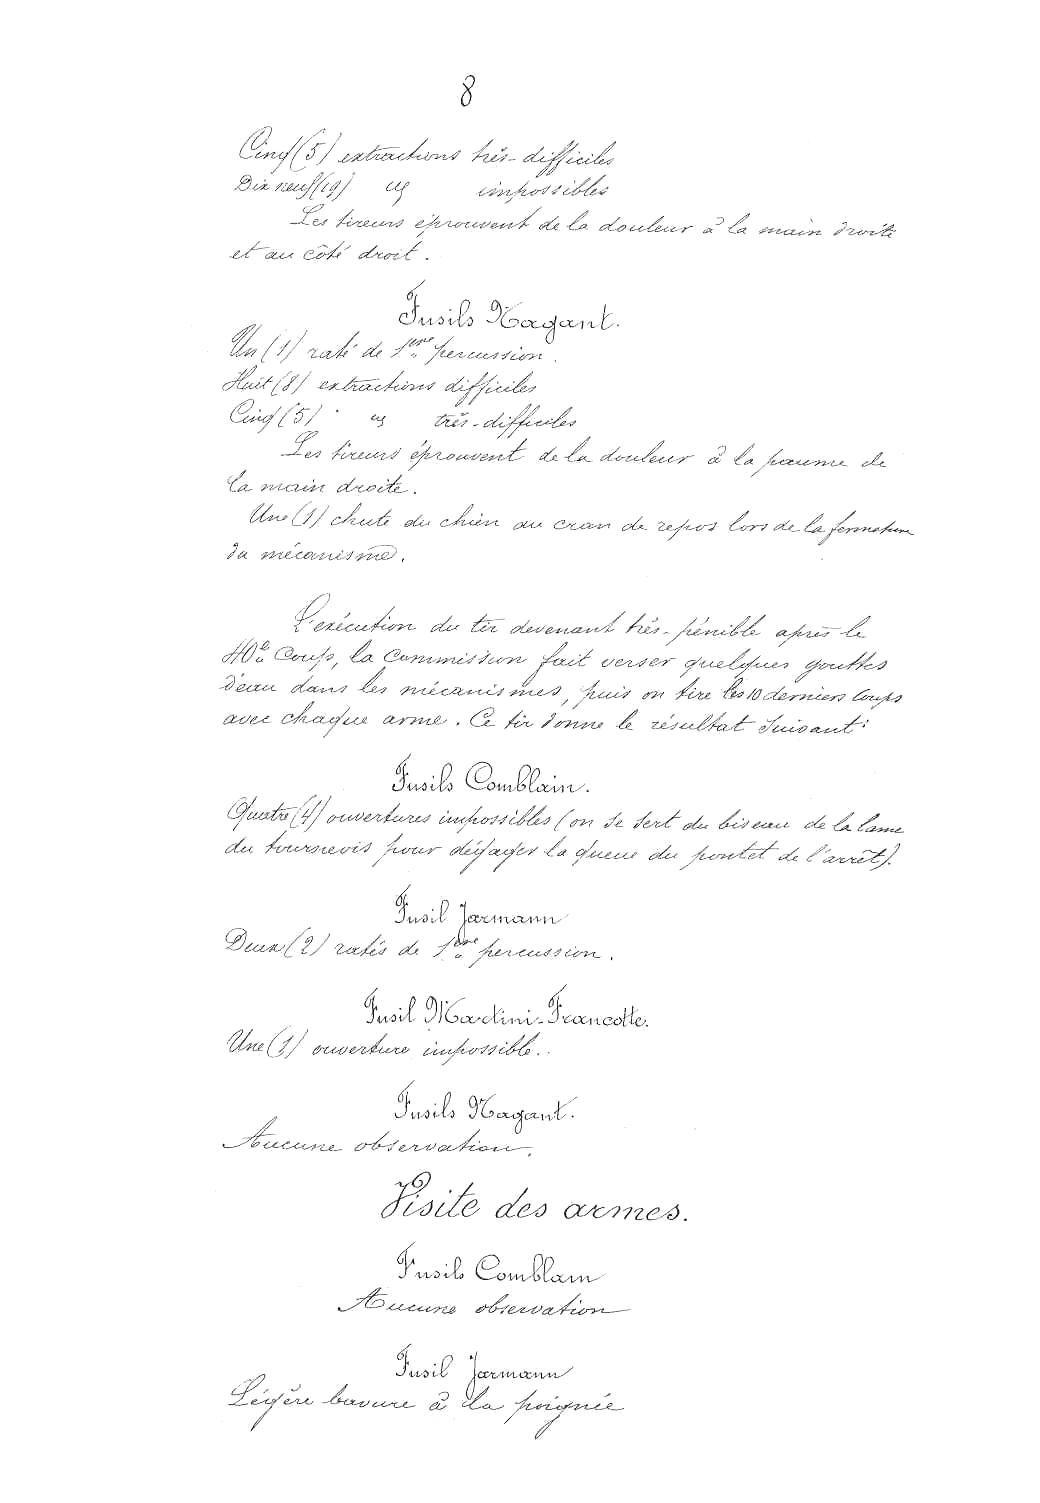 8
Cinq (5) extractions très-difficiles
Dix neuf (19) id impossibles
Les tireurs éprouvent de la douleur à la main droite
et au côté droit.
Fusils Nagant.
Un (1) raté de 1ère percussion.
Huit (8) extractions difficiles
Cinq (5) id très-difficiles
Les tireurs éprouvent de la douleur à la paume de
la main droite.
Une (1) chute du chien au cran de repos lors de la fermeture
du mécanisme.
L'exécution du tir devenant très-pénible après le
40e coup, la Commission fait verser quelques gouttes
d'eau dans les mécanismes, puis on tire les 10 derniers coups
avec chaque arme. Ce tir donne le résultat suivant:
Fusils Comblain.
Quatre (4) ouvertures impossibles (on se sert du biseau de la lame
du tournevis pour dégager la queue du pontet de l'arrêt).
Fusil Jarmann
Deux (2) ratés de 1ère percussion.
Fusil Martini-Francotte.
Une (1) ouverture impossible.
Fusils Nagant.
Aucune observation.
Visite des armes.
Fusils Comblain
Aucune observation
Fusil Jarmann
Légère bavure à la poignée